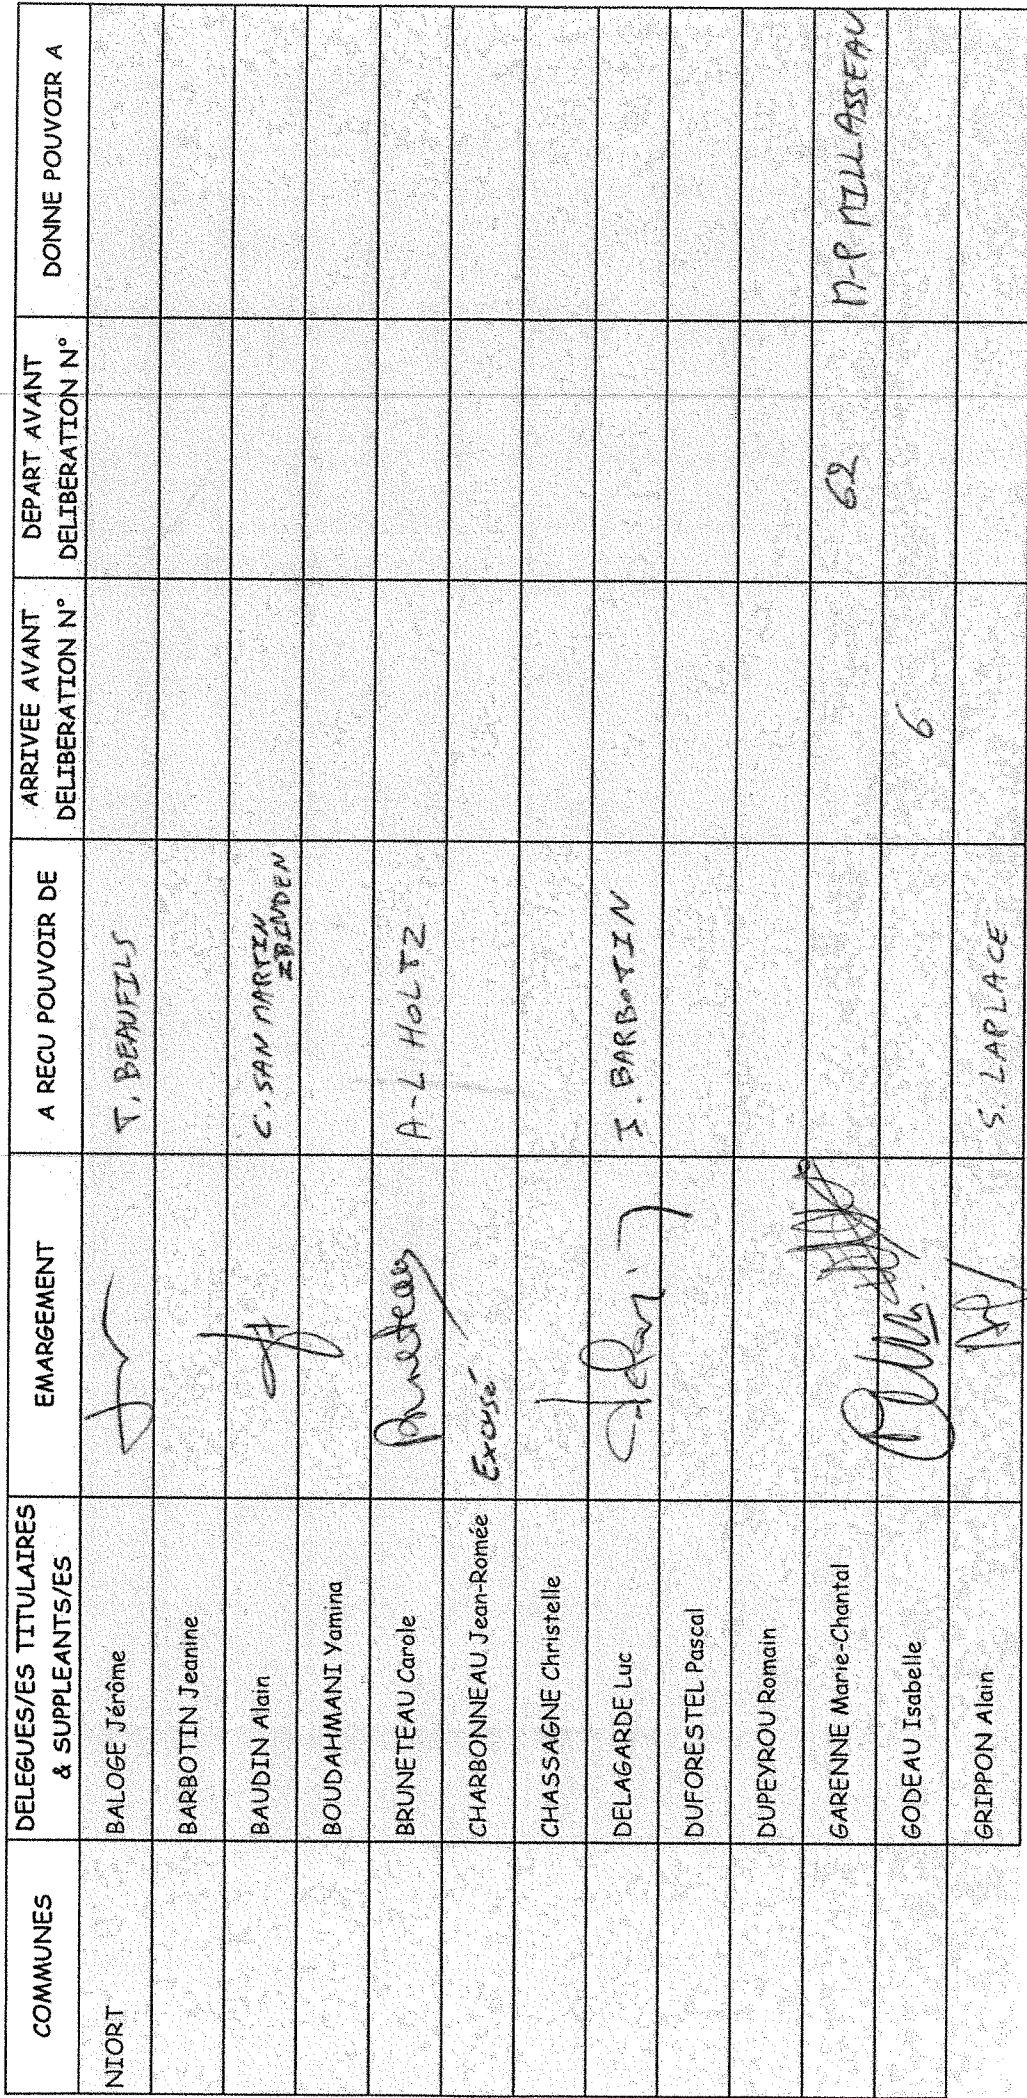 COMMUNES
DELEGUES/ES TITULAIRES
& SUPPLEANTS/ES
EMARGEMENT
A RECU POUVOIR DE
ARRIVEE AVANT
DELIBERATION N°
DEPART AVANT
DELIBERATION N°
DONNE POUVOIR A
NIORT
BALOGE Jérôme
T. BEAUFILS
BARBOTIN Jeanine
BAUDIN Alain
C. SAN MARTIN
ZBINDEN
BOUDAHMANI Yamina
BRUNETEAU Carole
Bruneteau
A-L HOLTZ
CHARBONNEAU Jean-Romée
Excusé
CHASSAGNE Christelle
DELAGARDE Luc
I. BARBOTIN
DUFORESTEL Pascal
DUPEYROU Romain
GARENNE Marie-Chantal
62
M-P MILLASSEAU
GODEAU Isabelle
6
GRIPPON Alain
S. LAPLACE